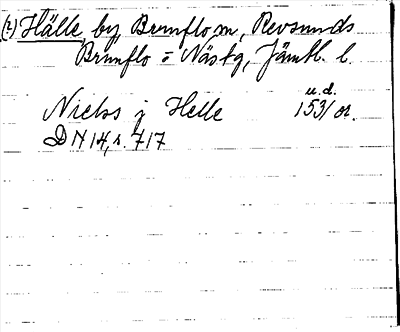 (?) Hälle, by, Brunflo sn, Revsunds
Brunflo o Näs tg, Jämtl. l.
u.d.
Niels j Helle 1531 or.
DN 14, s. 717